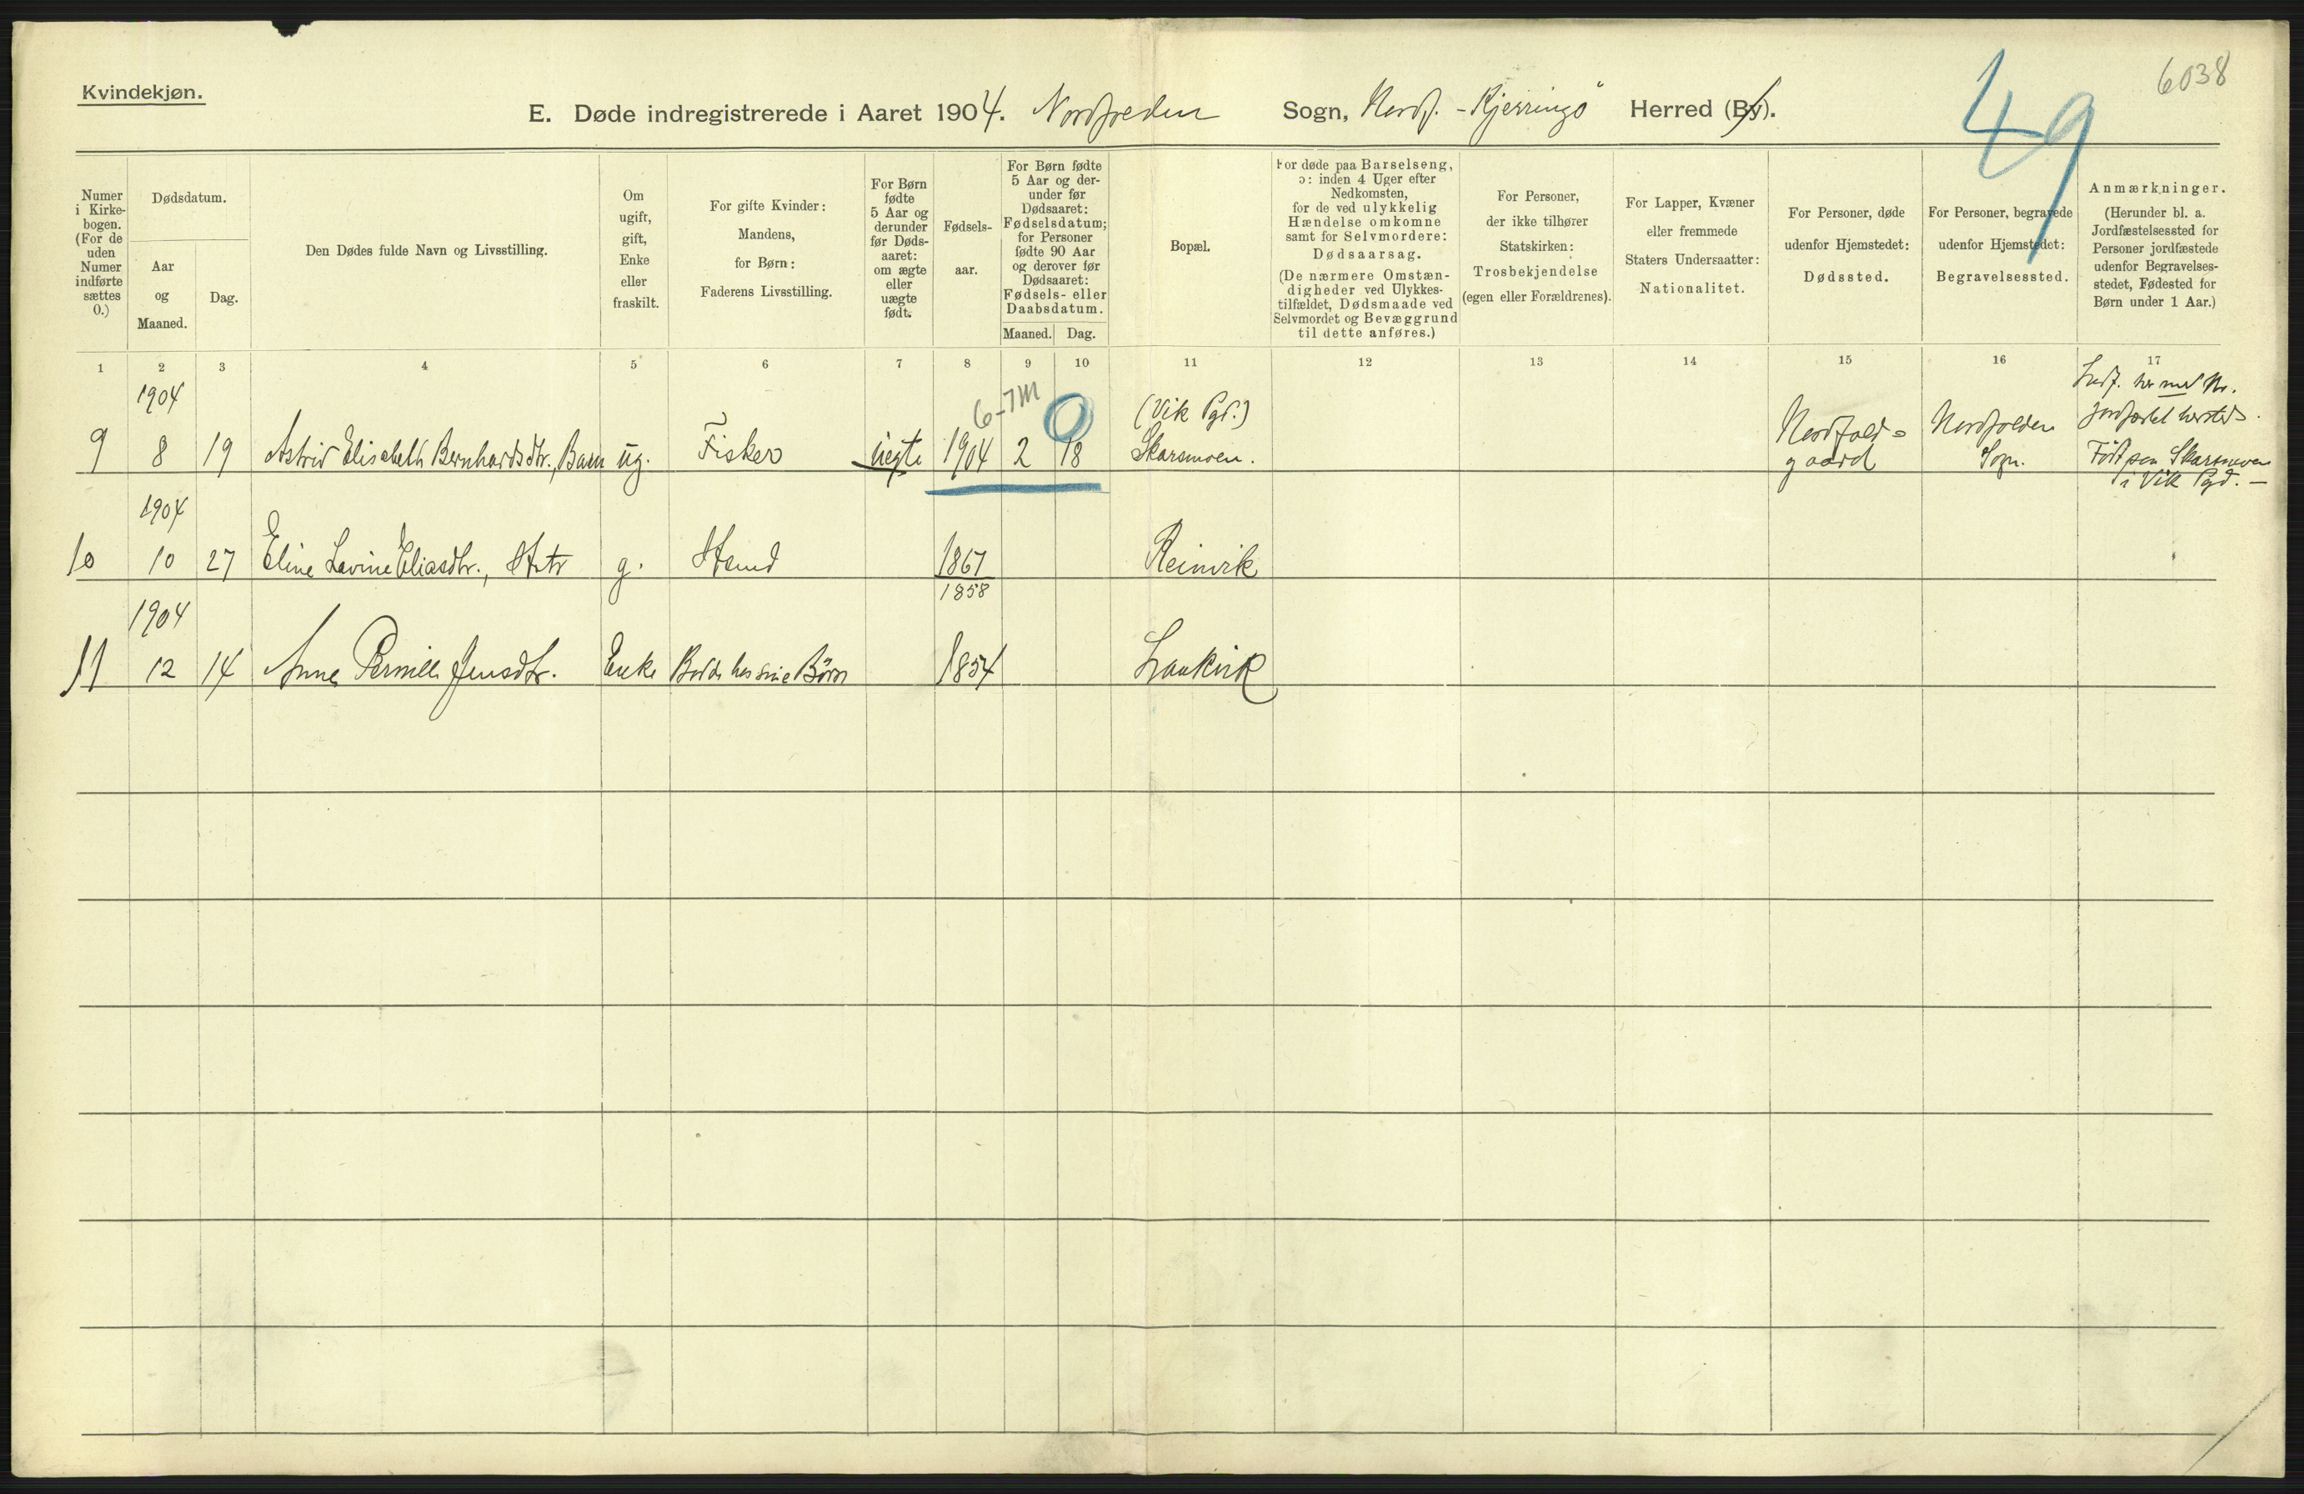 Kvindekjøn.
6038
49
E. Døde indregistrerede i Aaret 1904. Nordfolden Sogn, Nordf. - Kjerringø Herred (By).
Numer
i Kirke-
bogen.
(For de
uden
Numer
indførte
sættes
0.)
Dødsdatum.
Aar
og
Maaned.
Dag.
Den Dødes fulde Navn og Livsstilling.
Om
ugift,
gift,
Enke
eller
fraskilt.
For gifte Kvinder:
Mandens,
for Børn:
Faderens Livsstilling.
For Børn
fødte
5 Aar og
derunder
før Døds-
aaret:
om ægte
eller
uægte
født.
Fødsels-
aar.
For Børn fødte
5 Aar og der-
under før
Dødsaaret:
Fødselsdatum;
for Personer
fødte 90 Aar
og derover før
Dødsaaret:
Fødsels- eller
Daabsdatum.
Maaned. Dag.
Bopæl.
For døde paa Barselseng,
ɔ: inden 4 Uger efter
Nedkomsten,
for de ved ulykkelig
Hændelse omkomne
samt for Selvmordere:
Dødsaarsag.
(De nærmere Omstæn-
digheder ved Ulykkes-
tilfældet, Dødsmaade ved
Selvmordet og Bevæggrund
til dette anføres.)
For Personer,
der ikke tilhører
Statskirken:
Trosbekjendelse
(egen eller Forældrenes).
For Lapper, Kvæner
eller fremmede
Staters Undersaatter:
Nationalitet.
For Personer, døde
udenfor Hjemstedet:
Dødssted.
For Personer, begravede
udenfor Hjemstedet:
Begravelsessted.
Anmærkninger.
(Herunder bl. a.
Jordfæstelsessted for
Personer jordfæstede
udenfor Begravelses-
stedet, Fødested for
Børn under 1 Aar.)
1 2 3 4 5 6 7 8 9 10 11 12 13 14 15 16 17
1904
6-7M
0
(Vik Pgd.)
9 8 19 Astrid Elisabeth Bernhardsdtr., Barn ug. Fisker uegte 1904 2 18 Skarsmoen.
Nordfold=
gaard
Nordfolden
Sogn.
Indf. her med Nr.
jordfæstet hersteds.
Født paa Skarsmoen
i Vik Pgd. —
1904
10 10 27 Eline Lovine Eliasdtr., Hstr g. Hsmd 1867 Reinvik
1858
1904
11 12 14 Anne Pernille Jensdtr. Enke Bodde hos sine Børn 1854 Laukvik